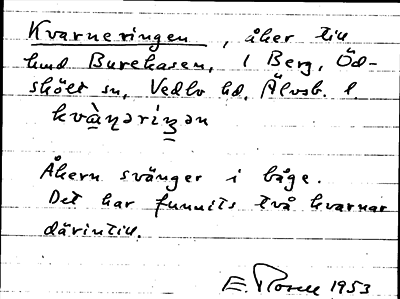 Kvarneringen, åker till
hmd Burehasen, 1 Berg, Öd-
skölt sn, Vedbo hd, Älvsb. l.
kvàɳəriŋən
Åkern svänger i båge.
Det har funnits två kvarnar
därintill.
E. 1953